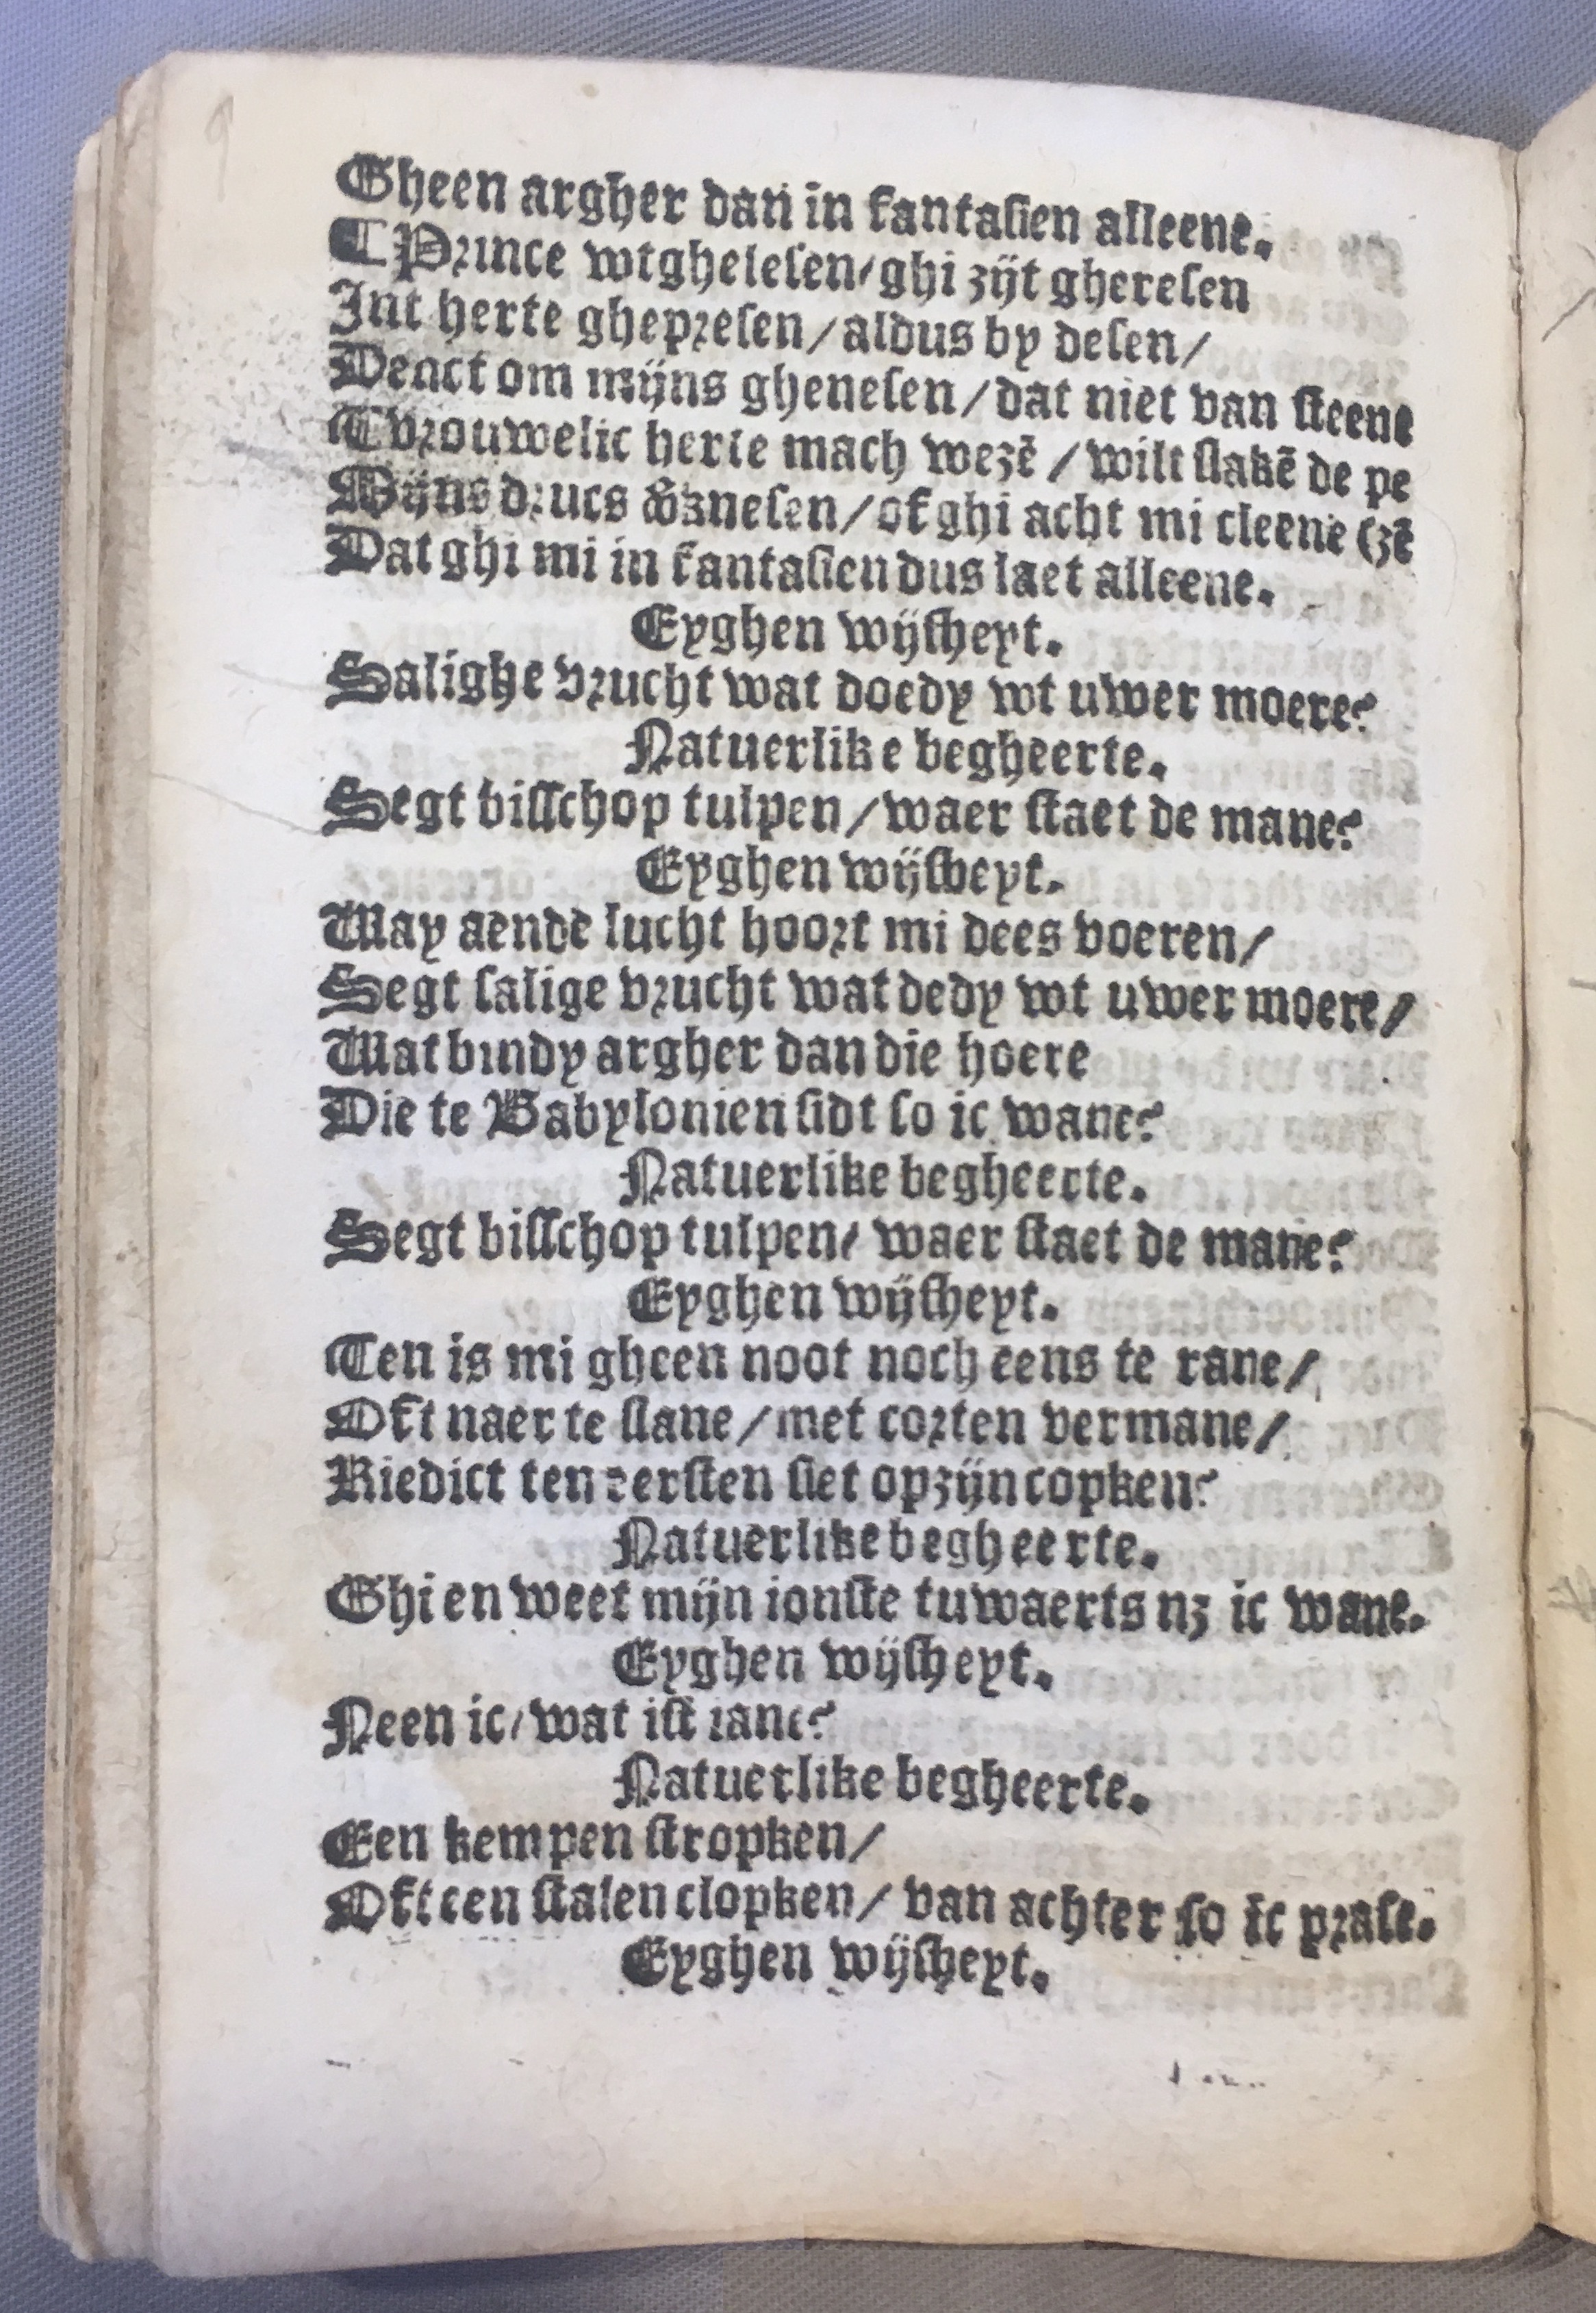 Gheen argher dan in fantasien alleene.
Prince wtghelesen/ghi zijt gheresen
Int herte ghepresen/aldus by desen/
Denct om mijns ghenesen/dat niet van steene
Tvrouwelic herte mach wezē/wilt slakē de pe
Mijns drucs /of ghi acht mi cleene (zē
Dat ghi mi in fantasien dus laet alleene.
Eyghen wijsheyt.
Salighe vrucht wat doedy wt uwer moere?
Natuerlike begheerte.
Segt bisschop tulpen/waer staet de mane?
Eyghen wijsheyt.
Way aende lucht hoort mi dees voeren/
Segt salige vrucht wat dedy wt uwer moere/
Wat bindy argher dan die hoere
Die te Babylonien sidt so ic wane?
Natuerlike begheerte.
Segt bisschop tulpen/ waer staet de mane?
Eyghen wijsheyt.
Ten is mi gheen noot noch eens te rane/
Oft naer te slane/met corten vermane/
Riedict ten eersten siet op zijn copken?
Natuerlike begheerte.
Ghi en weet mijn ionste tuwaerts nz ic wane.
Eyghen wijsheyt.
Neen ic/wat ist iane?
Natuerlike begheerte.
Een kempen stropken/
Oft een stalen clopken/ van achter so ic prase.
Eyghen wijsheyt.